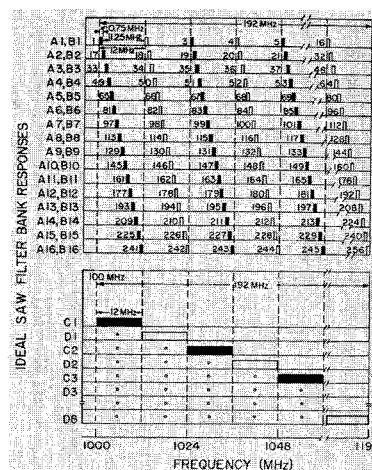 192 MHz
0.75 MHz
1.25 MHz
12 MHz
A1,B1 1 3 4 5 16
A2,B2 17 18 19 20 21 32
A3,B3 33 34 35 36 37 48
A4,B4 49 50 51 52 53 64
A5,B5 65 66 67 68 69 80
A6,B6 81 82 83 84 85 96
A7,B7 97 98 99 100 101 112
A8,B8 113 114 115 116 117 128
A9,B9 129 130 131 132 133 144
A10,B10 145 146 147 148 149 160
A11,B11 161 162 163 164 165 176
A12,B12 177 178 179 180 181 192
A13,B13 193 194 195 196 197 208
A14,B14 209 210 211 212 213 224
A15,B15 225 226 227 228 229 240
A16,B16 241 242 243 244 245 256
IDEAL SAW FILTER BANK RESPONSES
100 MHz
192 MHz
12 MHz
C1
D1
C2
D2
C3
D3
D8
1000 1024 1048 119
FREQUENCY (MHz)